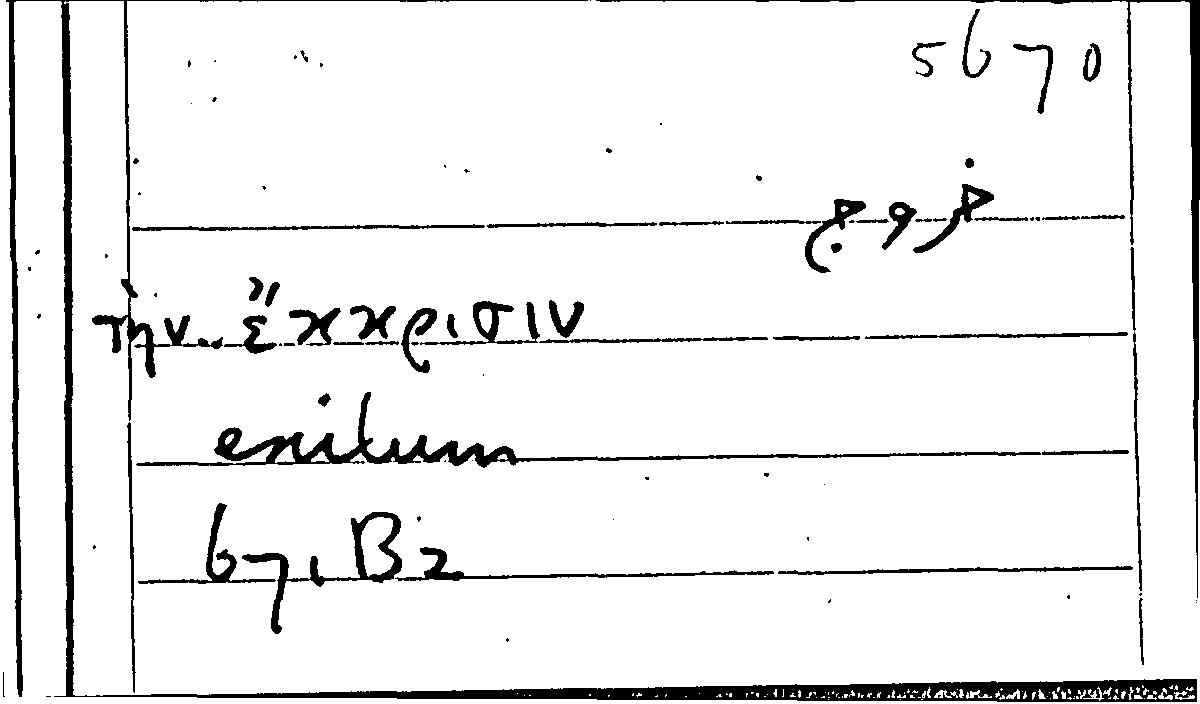 5670
خروج
τὴν.. ἔκκρισιν
exitum
671 B2